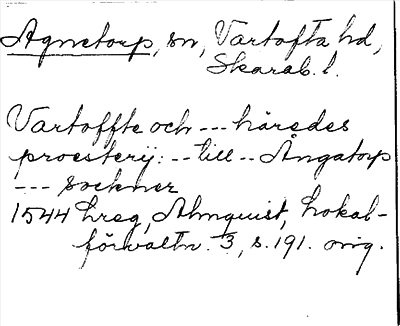 Agnetorp, sn, Vartofta hd,
Skarab. l.
Vartoffte och --- häredes
proesterij: -- till -- Ångatorp
--- sockner
1544 hreg, Almquist, Lokal-
förvaltn. 3, s. 191. orig.